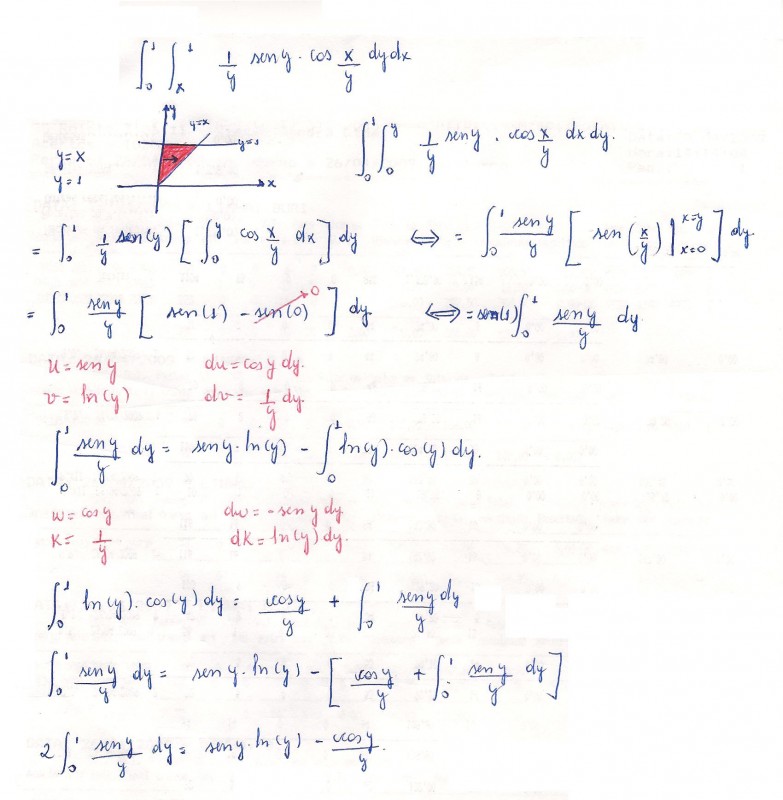 ∫₀¹ ∫ₓ¹ 1/y sen y · cos x/y dy dx
y
y=x
y=1
x
y=x
y=1
∫₀¹ ∫₀^y 1/y sen y · cos x/y dx dy.
= ∫₀¹ 1/y sen(y) [ ∫₀^y cos x/y dx ] dy ⇔ = ∫₀¹ sen y/y [ sen(x/y) |_{x=0}^{x=y} ] dy.
= ∫₀¹ sen y/y [ sen(1) - sen(0) 0 ] dy ⇔ = sen(1) ∫₀¹ sen y/y dy
u = sen y du = cos y dy.
v = ln(y) dv = 1/y dy.
∫₀¹ sen y/y dy = sen y · ln(y) - ∫₀¹ ln(y) · cos(y) dy.
w = cos y dw = -sen y dy
K = 1/y dK = ln(y) dy.
∫₀¹ ln(y) · cos(y) dy = cos y/y + ∫₀¹ sen y dy/y
∫₀¹ sen y/y dy = sen y · ln(y) - [ cos y/y + ∫₀¹ sen y/y dy ]
2 ∫₀¹ sen y/y dy = sen y · ln(y) - cos y/y.